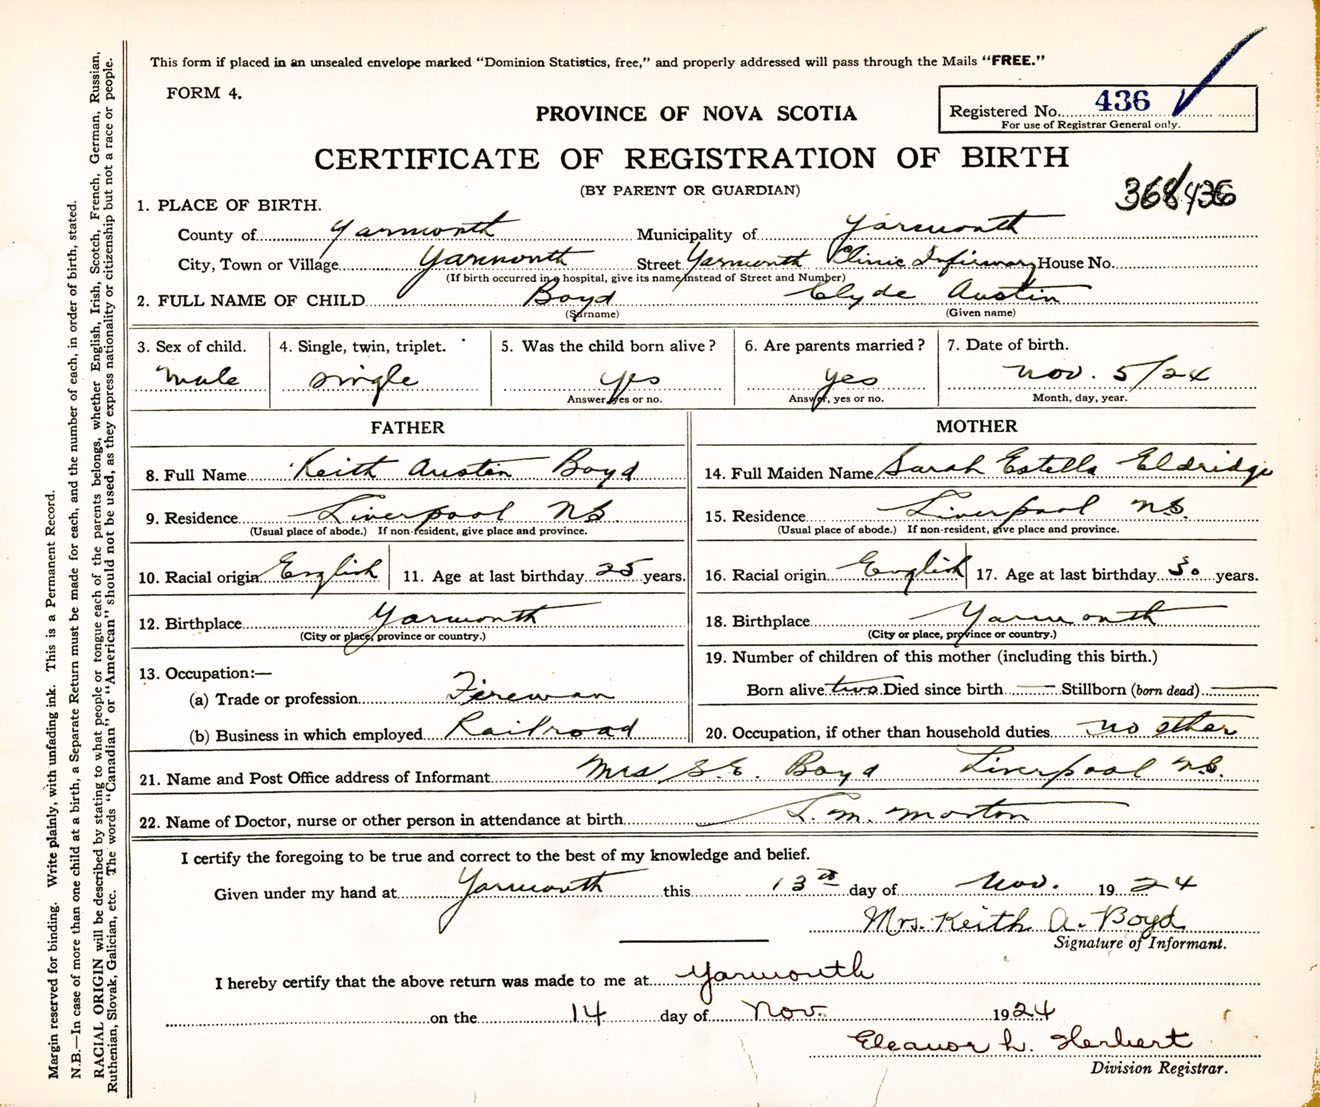 This form if placed in an unsealed envelope marked "Dominion Statistics, free," and properly addressed will pass through the Mails "FREE."
FORM 4.
PROVINCE OF NOVA SCOTIA
Registered No. 436
For use of Registrar General only.
CERTIFICATE OF REGISTRATION OF BIRTH
(BY PARENT OR GUARDIAN)
368436
1. PLACE OF BIRTH.
County of Yarmouth Municipality of Yarmouth
City, Town or Village Yarmouth Street Yarmouth Clinic Infirmary House No.
(If birth occurred in a hospital, give its name instead of Street and Number)
2. FULL NAME OF CHILD Boyd Clyde Austin
(Surname) (Given name)
3. Sex of child. 4. Single, twin, triplet. 5. Was the child born alive? 6. Are parents married? 7. Date of birth.
male single yes yes Nov. 5/24
Answer, yes or no. Answer, yes or no. Month, day, year.
FATHER MOTHER
8. Full Name Keith Austin Boyd 14. Full Maiden Name Sarah Estella Eldridge
9. Residence Liverpool NS 15. Residence Liverpool N.S.
(Usual place of abode.) If non-resident, give place and province. (Usual place of abode.) If non-resident, give place and province.
10. Racial origin English 11. Age at last birthday 25 years. 16. Racial origin English 17. Age at last birthday 30 years.
12. Birthplace Yarmouth 18. Birthplace Yarmouth
(City or place, province or country.) (City or place, province or country.)
13. Occupation:— 19. Number of children of this mother (including this birth.)
(a) Trade or profession Fireman Born alive two Died since birth — Stillborn (born dead) —
(b) Business in which employed Railroad 20. Occupation, if other than household duties no other
21. Name and Post Office address of Informant Mrs S.E. Boyd Liverpool N.S.
22. Name of Doctor, nurse or other person in attendance at birth L. M. Morton
I certify the foregoing to be true and correct to the best of my knowledge and belief.
Given under my hand at Yarmouth this 13th day of Nov. 1924
Mrs. Keith A. Boyd
Signature of Informant.
I hereby certify that the above return was made to me at Yarmouth
on the 14 day of Nov. 1924
Eleanor L. Herbert
Division Registrar.
Margin reserved for binding. Write plainly, with unfading ink. This is a Permanent Record.
N.B.—In case of more than one child at a birth, a Separate Return must be made for each, and the number of each, in order of birth, stated.
RACIAL ORIGIN will be described by stating to what people or tongue each of the parents belongs, whether English, Irish, Scotch, French, German, Russian,
Ruthenian, Slovak, Galician, etc. The words "Canadian" or "American" should not be used, as they express nationality or citizenship but not a race or people.